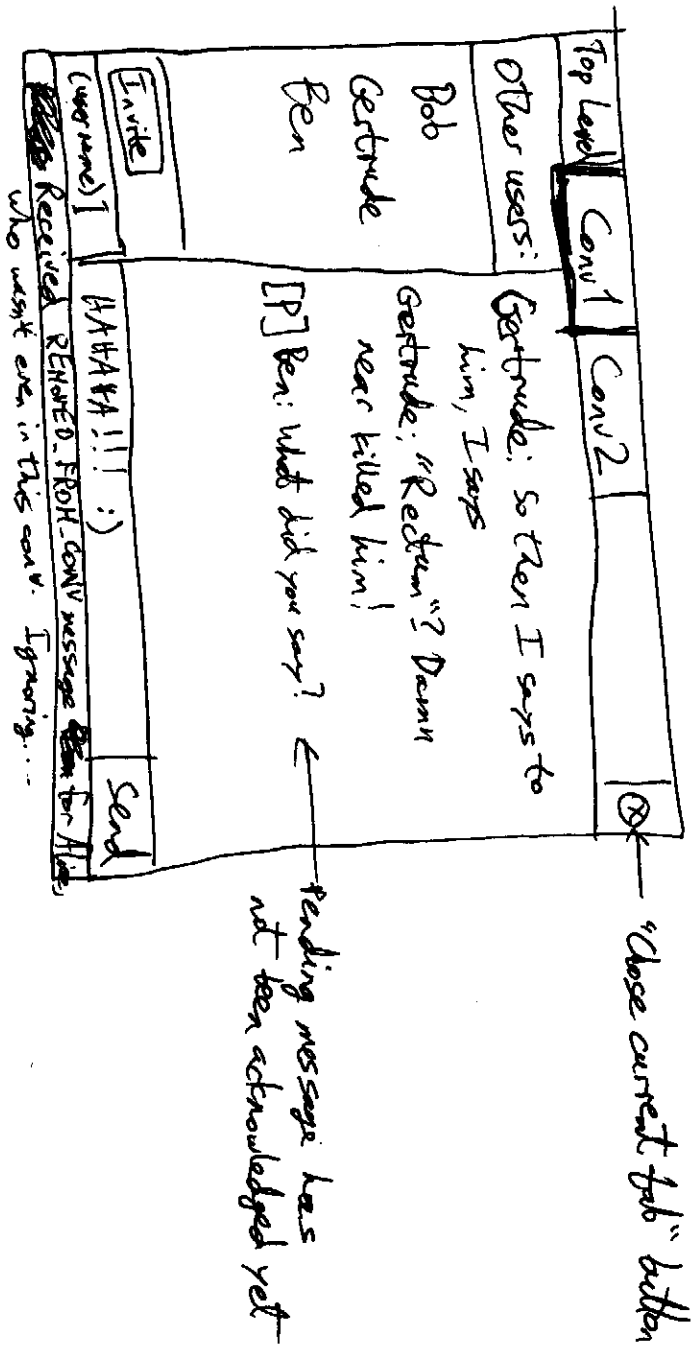 Top Level Conv1 Conv2 (X)
"Close current tab" button
Other users:
Bob
Gertrude
Ben
Invite
Gertrude: So then I says to
him, I says
Gertrude: "Rectum"? Damn
near killed him!
[P] Ben: What did you say?
Pending message has
not been acknowledged yet
(username)
HAHAHA!!! :)
Send
Received REMOVED_FROM_CONV message for Alice,
who wasn't even in this conv. Ignoring...